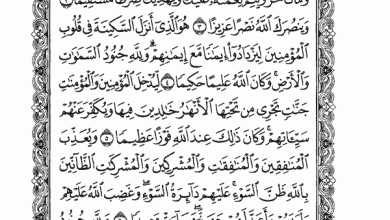 وَيَنصُرَكَ ٱللَّهُ نَصْرًا عَزِيزًا ٣ هُوَ ٱلَّذِىٓ أَنزَلَ ٱلسَّكِينَةَ فِى قُلُوبِ
ٱلْمُؤْمِنِينَ لِيَزْدَادُوٓا۟ إِيمَٰنًا مَّعَ إِيمَٰنِهِمْ ۗ وَلِلَّهِ جُنُودُ ٱلسَّمَٰوَٰتِ
وَٱلْأَرْضِ ۚ وَكَانَ ٱللَّهُ عَلِيمًا حَكِيمًا ٤ لِّيُدْخِلَ ٱلْمُؤْمِنِينَ وَٱلْمُؤْمِنَٰتِ
جَنَّٰتٍ تَجْرِى مِن تَحْتِهَا ٱلْأَنْهَٰرُ خَٰلِدِينَ فِيهَا وَيُكَفِّرَ عَنْهُمْ
سَيِّـَٔاتِهِمْ ۚ وَكَانَ ذَٰلِكَ عِندَ ٱللَّهِ فَوْزًا عَظِيمًا ٥ وَيُعَذِّبَ
ٱلْمُنَٰفِقِينَ وَٱلْمُنَٰفِقَٰتِ وَٱلْمُشْرِكِينَ وَٱلْمُشْرِكَٰتِ ٱلظَّآنِّينَ
بِٱللَّهِ ظَنَّ ٱلسَّوْءِ ۚ عَلَيْهِمْ دَآئِرَةُ ٱلسَّوْءِ ۖ وَغَضِبَ ٱللَّهُ عَلَيْهِمْ